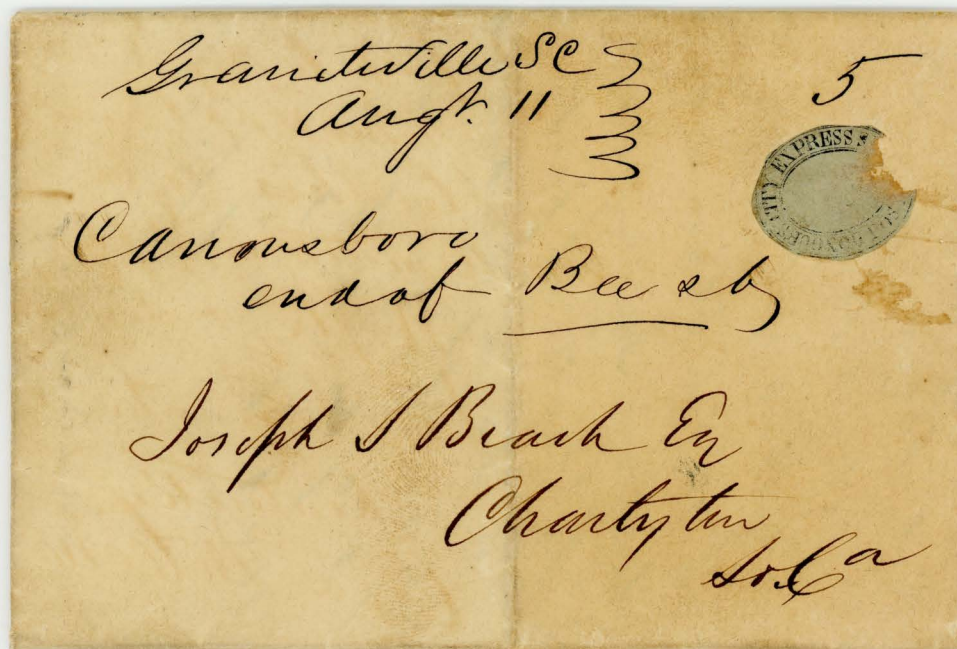 Graniteville SC
5
Augt. 11
CITY EXPRESS
HONOUR'S
Cannonsboro
end of Bee st
Joseph S Beach Eq
Charleston
So. Ca